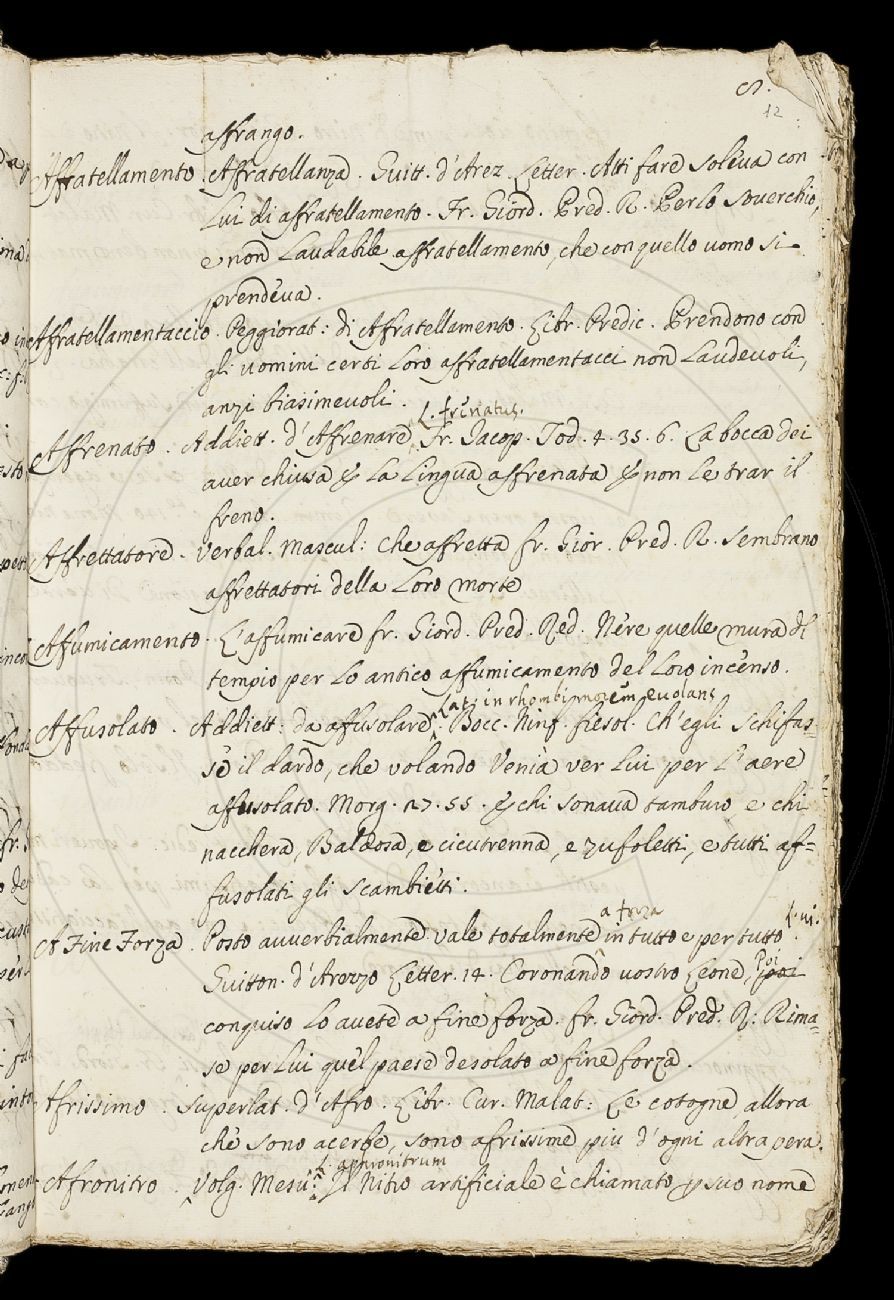 12
affrango.
Affratellamento . Affratellanza . Guitt. d'Arez. Letter. Atti fare soleva con
Lui di affratellamento. Fr. Giord. Pred. R. Perlo soverchio,
e non Laudabile affratellamento, che con quello uomo si
prendeva.
Affratellamentaccio . Peggiorat: di Affratellamento. Libr. Predic. Prendono con
gli uomini certi Loro affratellamentacci non Laudevoli,
anzi biasimevoli.
L. frenatus.
Affrenato . Addiett. d'Affrenare, Fr. Jacop. Tod. 4. 35. 6. La bocca dei
aver chiusa & La Lingua affrenata & non Le trar il
freno.
Affrettatore . Verbal. Mascul: Che affretta fr. Gior. Pred. R. Sembrano
affrettatori della Loro morte
Affumicamento . L'affumicare fr. Giord. Pred. Red. Nere quelle mura di
tempio per Lo antico affumicamento del Loro incenso.
Lat: in rhombi morem evolans
Affusolato . Addiett: da affusolare. Bocc. Ninf. fiesol. Ch'egli Schifas=
se il dardo, che volando Venia ver Lui per L'aere
affusolato. Morg. 27. 55. & chi sonava tamburo e chi
nacchera, Baldosa, e cicutrenna, e zufoletti, e tutti af=
fusolati gli scambietti.
a forza
A Fine Forza . Posto avverbialmente vale totalmente in tutto e per tutto L. vi.
Guitton. d'Arezzo Letter. 14. Coronando vostro Leone, poi Poi
conquiso Lo avete a fine forza. fr. Giord. Pred. R: Rima=
se per Lui quel paese desolato a fine forza.
Afrissimo . Superlat. d'Afro. Libr. Cur. Malat: Le cotogne, allora
che sono acerbe, sono afrissime piu d'ogni altra pera.
L. aphronitrum
Afronitro . Volg. Mesu: Il Nitro artificiale è chiamato p suo nome